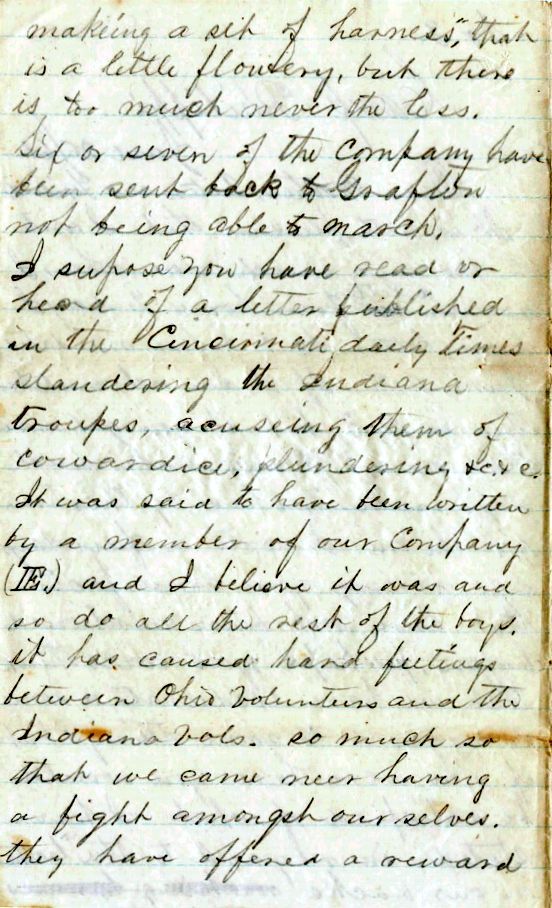 makeing a sit of harness", that
is a little flowery, but there
is too much never the less.
Six or seven of the company have
been sent back to Grafton
not being able to march.
I supose you have read or
heard of a letter published
in the Cincinnati daily Times
slandering the Indiana
troupes, acuseing them of
cowardice, plundering &c. & c.
It was said to have been written
by a member of our Company
(E.) and I believe it was and
so do all the rest of the boys.
it has caused hard feelings
between Ohio Volunteers and the
Indiana Vols. so much so
that we came neer having
a fight amongst ourselves.
they have offered a reward